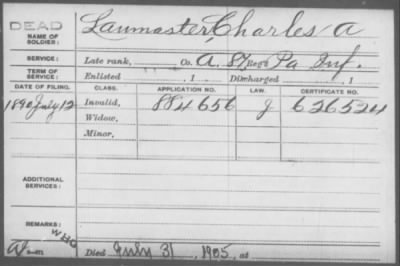 DEAD
NAME OF SOLDIER: Laumaster, Charles A
SERVICE: Late rank, Co. A, 87 Reg't Pa Inf.
TERM OF SERVICE: Enlisted , 1 Discharged , 1
DATE OF FILING. CLASS. APPLICATION NO. LAW. CERTIFICATE NO.
1890 July 12 Invalid, 884656 J 626524
Widow,
Minor,
ADDITIONAL SERVICES:
REMARKS: WHO
Died July 31, 1905, at